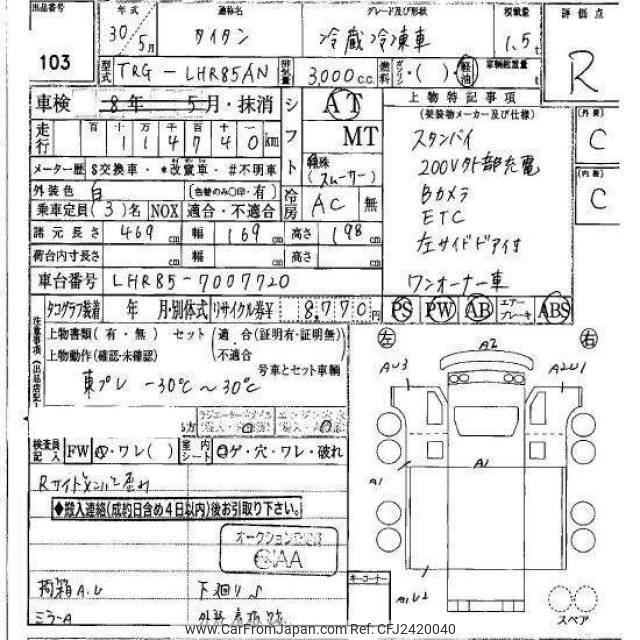 出品番号 年式 通称名 グレード及び形状 積載量 評価点
103 30年 5月 タイタン 冷蔵冷凍車 1.5t R
型式 TRG-LHR85AN 排気量 3,000 c.c. 燃料 ガソリン・( )・軽油 車輌総重量
車検 8年 5月・抹消 シフト AT 上物特記事項 (外装)
走行 百 十 万 千 百 十 一 MT (架装物メーカー及び仕様) C
1 1 4 7 4 0 km スタンバイ
メーター歴 $交換車・*改竄車・#不明車 特殊 (スムーサー) 200V外部充電 (内装)
外装色 白 (色替のみ○印・有) 冷房 AC 無 Bカメラ C
乗車定員 (3)名 NOX 適合・不適合 ETC
諸元長さ 469 cm 幅 169 cm 高さ 198 cm 左サイドドア付
荷台内寸長さ cm 幅 cm 高さ cm
車台番号 LHR85-7007720 ワンオーナー車
タコグラフ装着 年 月・別体式 リサイクル券¥ 8,770円 PS PW AB エアーブレーキ ABS
注意事項(出品店記
上物書類(有・無) セット (適合(証明有・証明無) 左 A2 右
上物動作(確認・未確認) ・不適合) AU3 A2U1
号車とセット車輌
東プレ -30℃~30℃
検査員記入 FW A・ワレ( ) 室内シート コゲ・穴・ワレ・破れ A1
Rサイドメンバー歪れ A1
◆搬入連絡(成約日含め4日以内)後お引取り下さい。
オークション
CAA
荷箱A.U 下廻りS キーコーナー A1U2
ミラーA スペア
www.CarFromJapan.com Ref: CFJ2420040